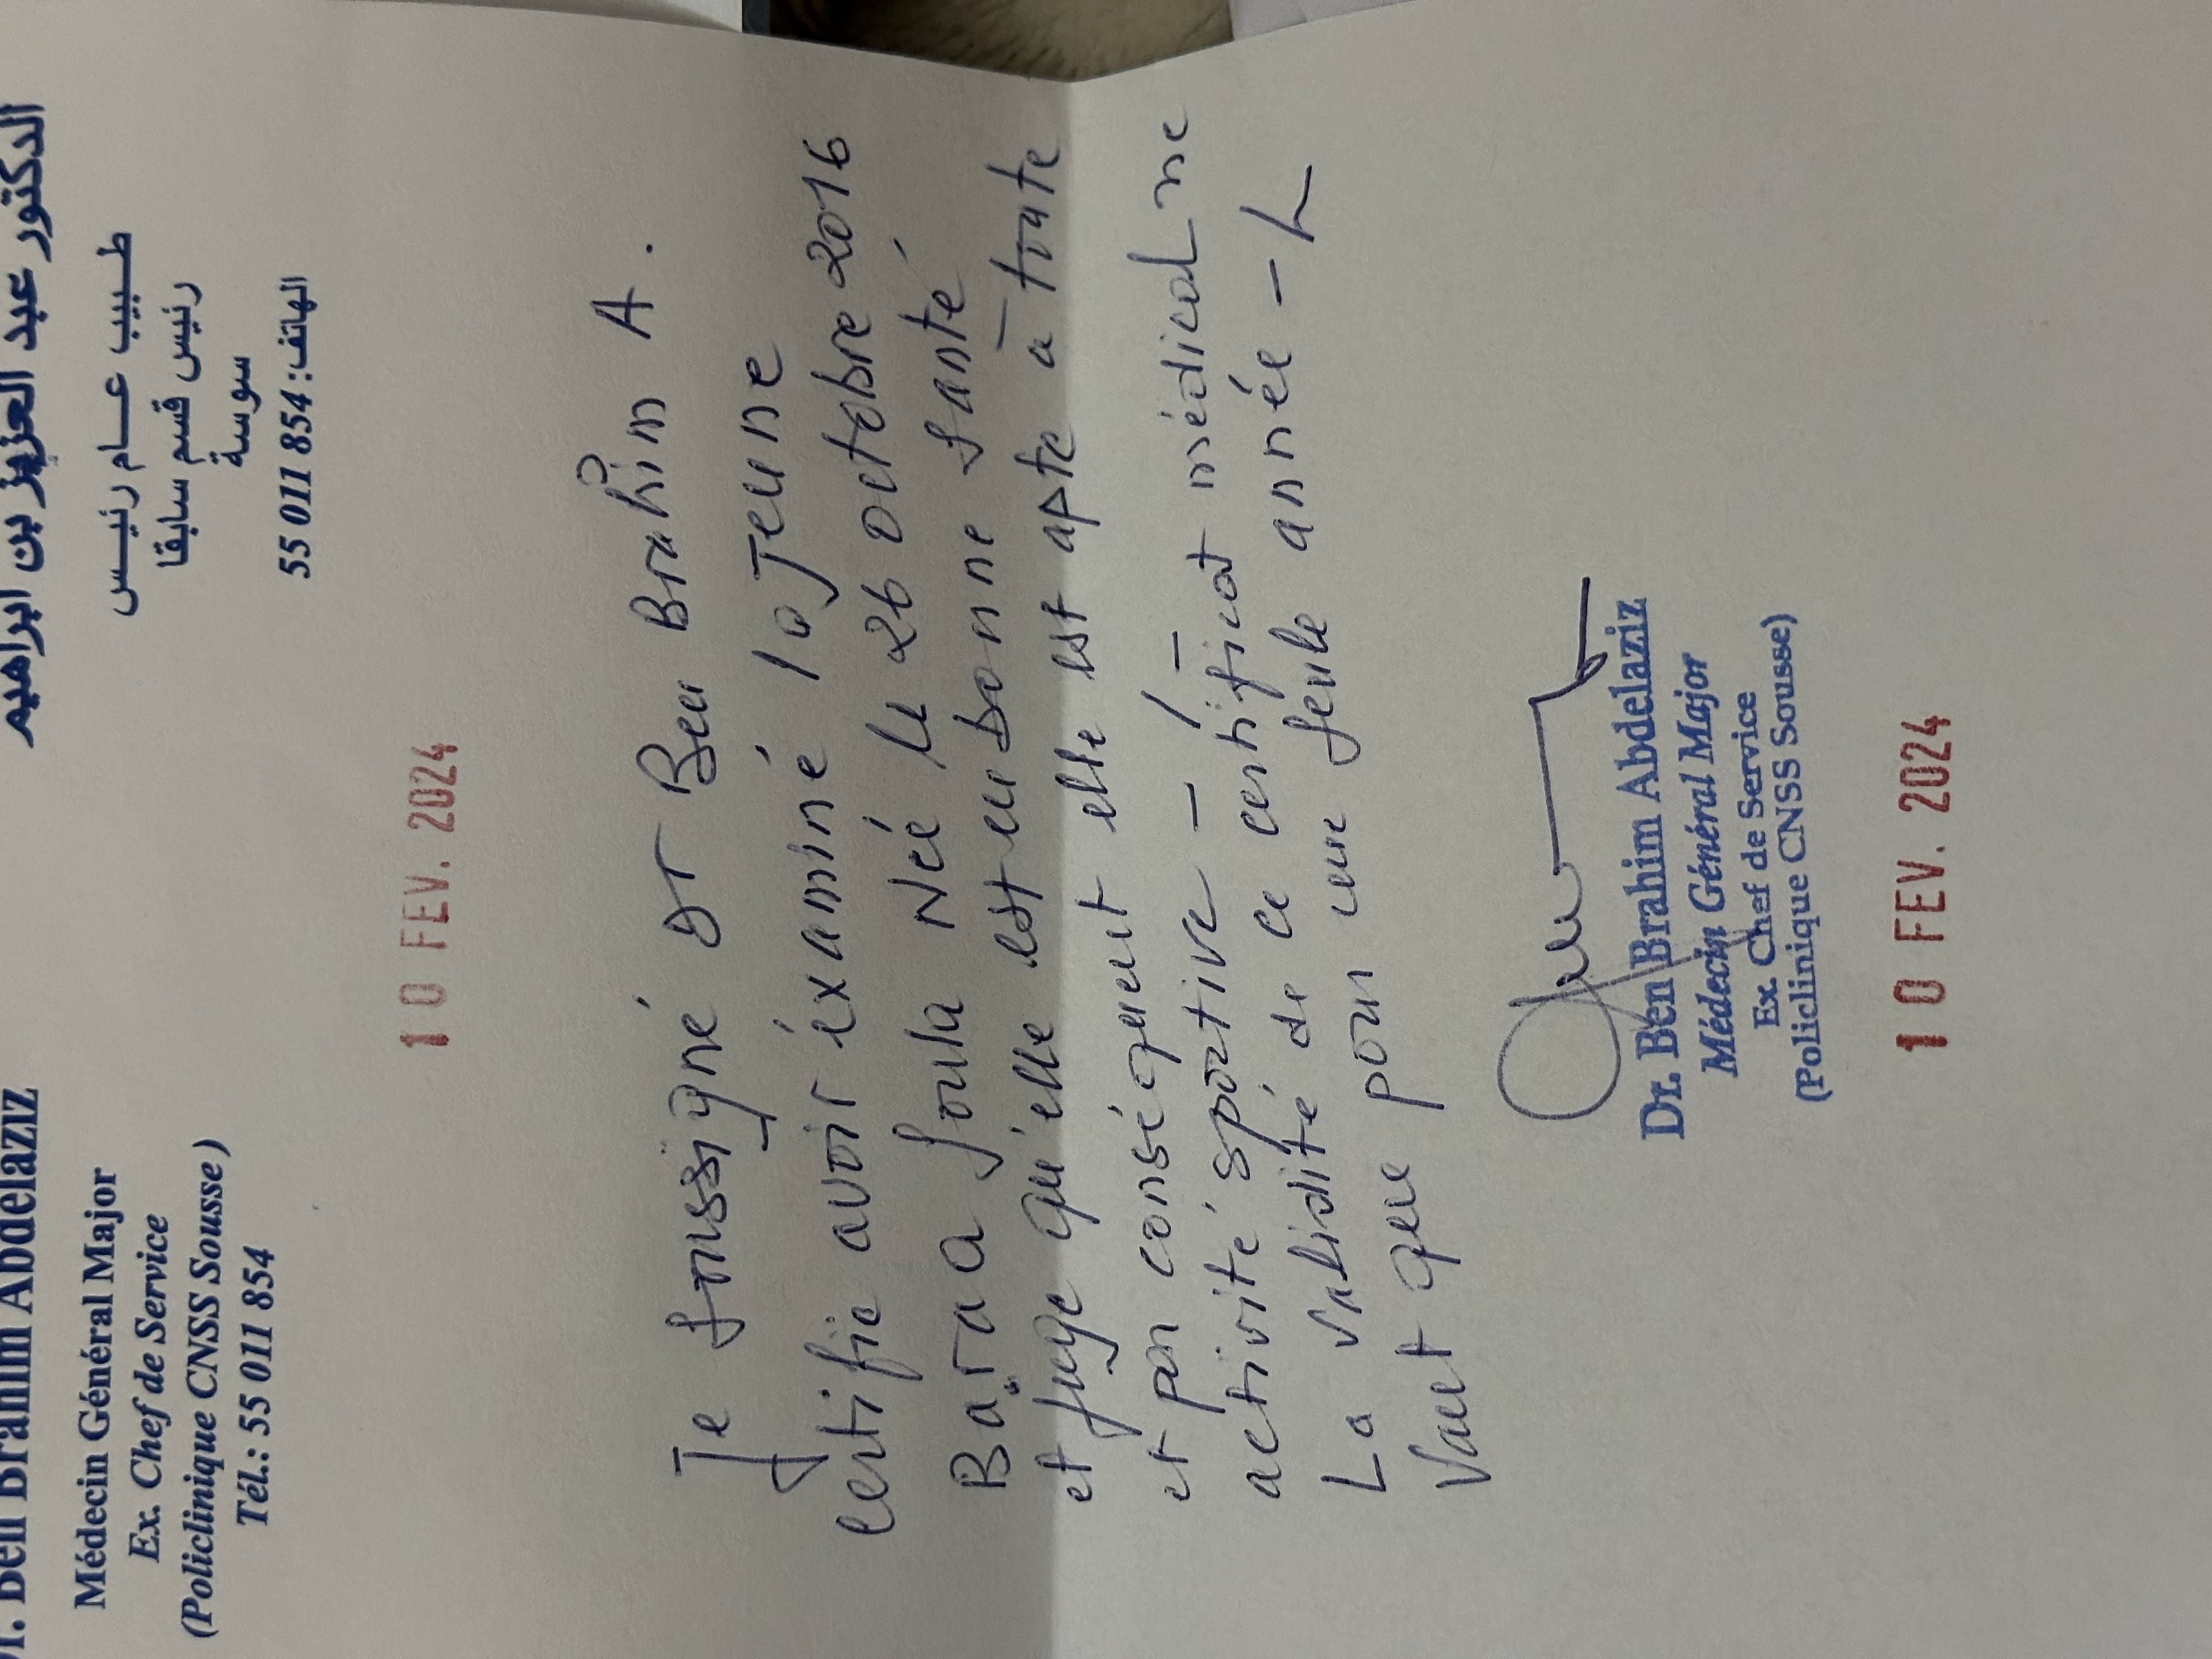 Dr. Ben Brahim Abdelaziz
Médecin Général Major
Ex. Chef de Service
(Policlinique CNSS Sousse)
Tél.: 55 011 854
الدكتور عبد العزيز بن ابراهيم
طبيب عام رئيس
رئيس قسم سابقا
سوسة
الهاتف: 55 011 854
10 FEV. 2024
Je soussigné Dr Ben Brahim A.
certifie avoir éxaminé la Jeune
Baraa Soula Née le 26 octobre 2016
et juge qu'elle est en bonne santé
et par conséquent elle est apte à toute
activité sportive -/-
La validité de ce certificat médical ne
Vaut que pour une seule année -
Dr. Ben Brahim Abdelaziz
Médecin Général Major
Ex. Chef de Service
(Policlinique CNSS Sousse)
10 FEV. 2024